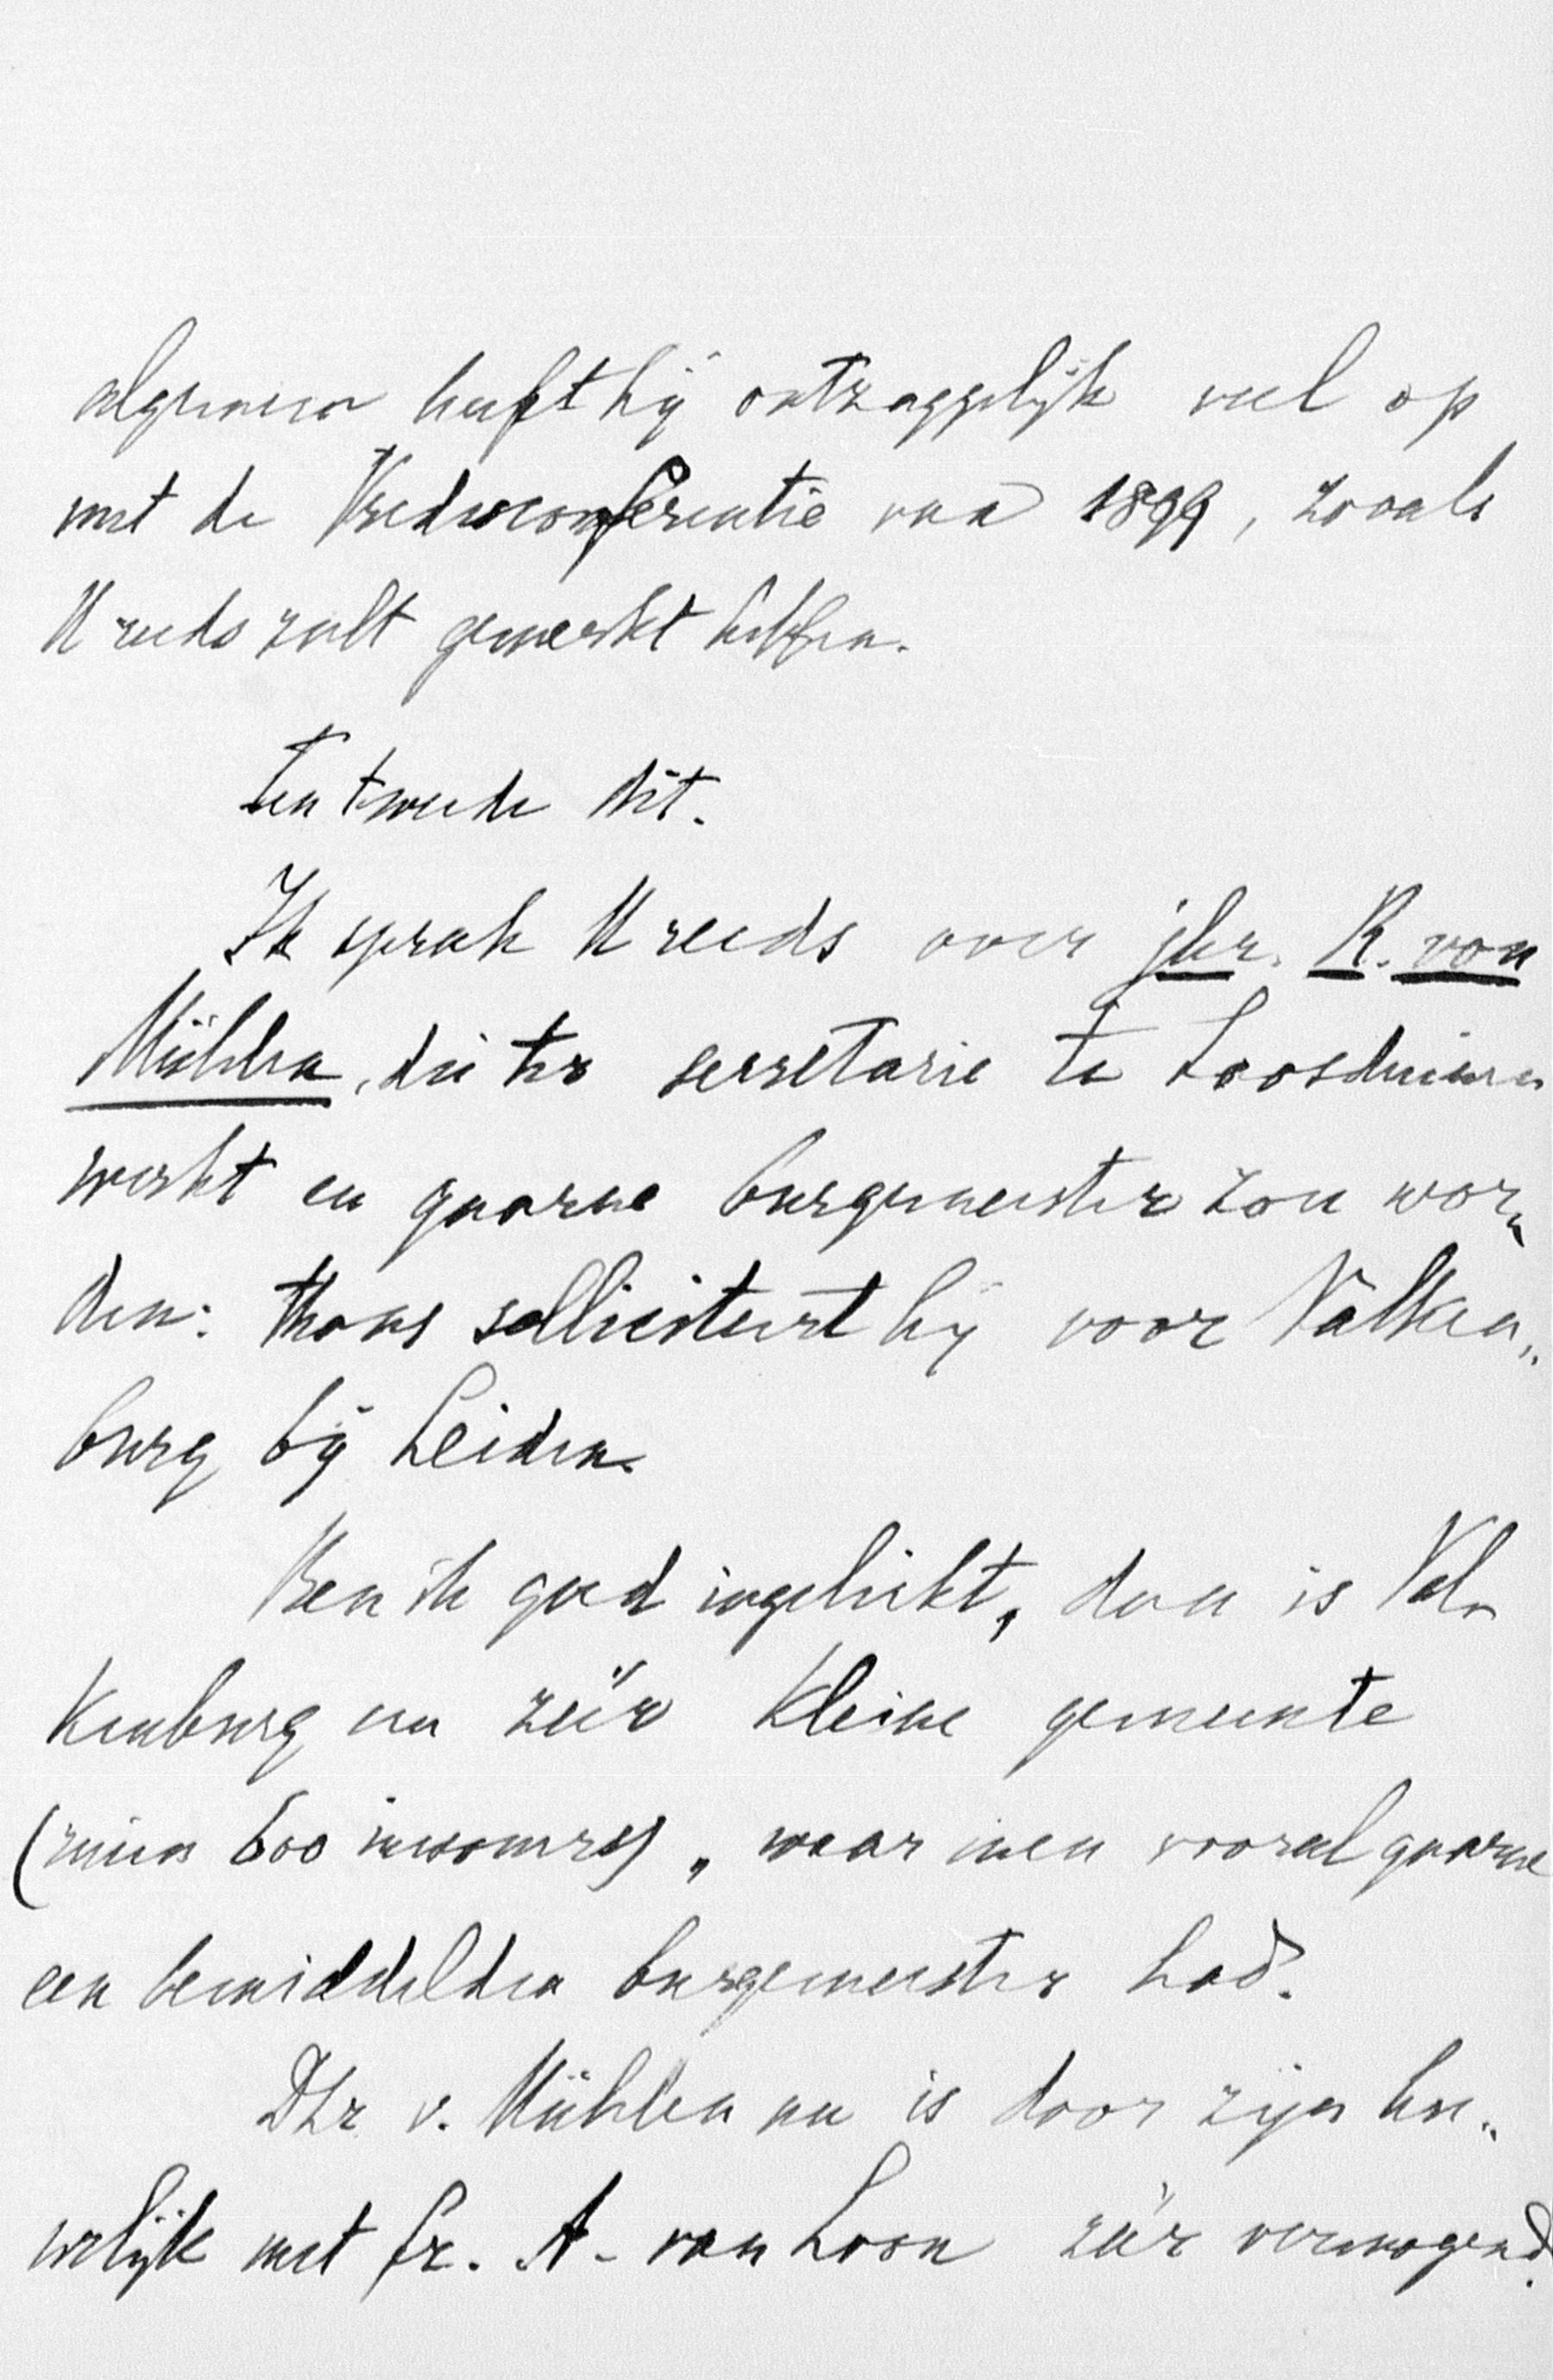 algemeen heeft hij ontzaggelijk veel op
met de Vredesconferentie van 1899, zooals
U reeds zult gemerkt hebben.
Ten tweede dit.
Ik sprak U reeds over jhr. R. von
Mühlen, die ter secretarie te Loosduinen
werkt en gaarne burgemeester zou wor„
den: thans solliciteert hij voor Valken„
burg bij Leiden.
Ben ik goed ingelicht, dan is Val„
kenburg een zéér kleine gemeente
(ruim 600 inwoners), waar men vooral gaarne
een bemiddelden burgemeester had.
Dhr v. Mühlen nu is door zijn hu„
welijk met fr. A. van Loon zéér vermogend.